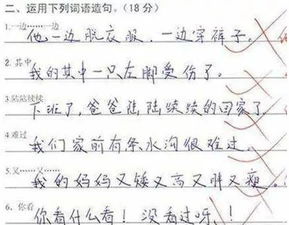 二、运用下列词语造句。(18分)
1.一边……一边……
他一边脱衣服、一边穿裤子。
2.其中
我的其中一只左脚受伤了。
3.陆陆续续
下班了，爸爸陆陆续续的回家了
4.难过
我们家前有条水沟很难过。
5.又……又……
我的妈妈又矮又高又胖又瘦。
6.你看
你看什么看！没看过呀！